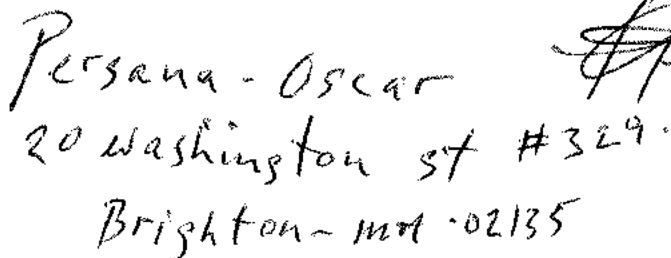 Persana - Oscar
20 Washington st #329.
Brighton - MA · 02135